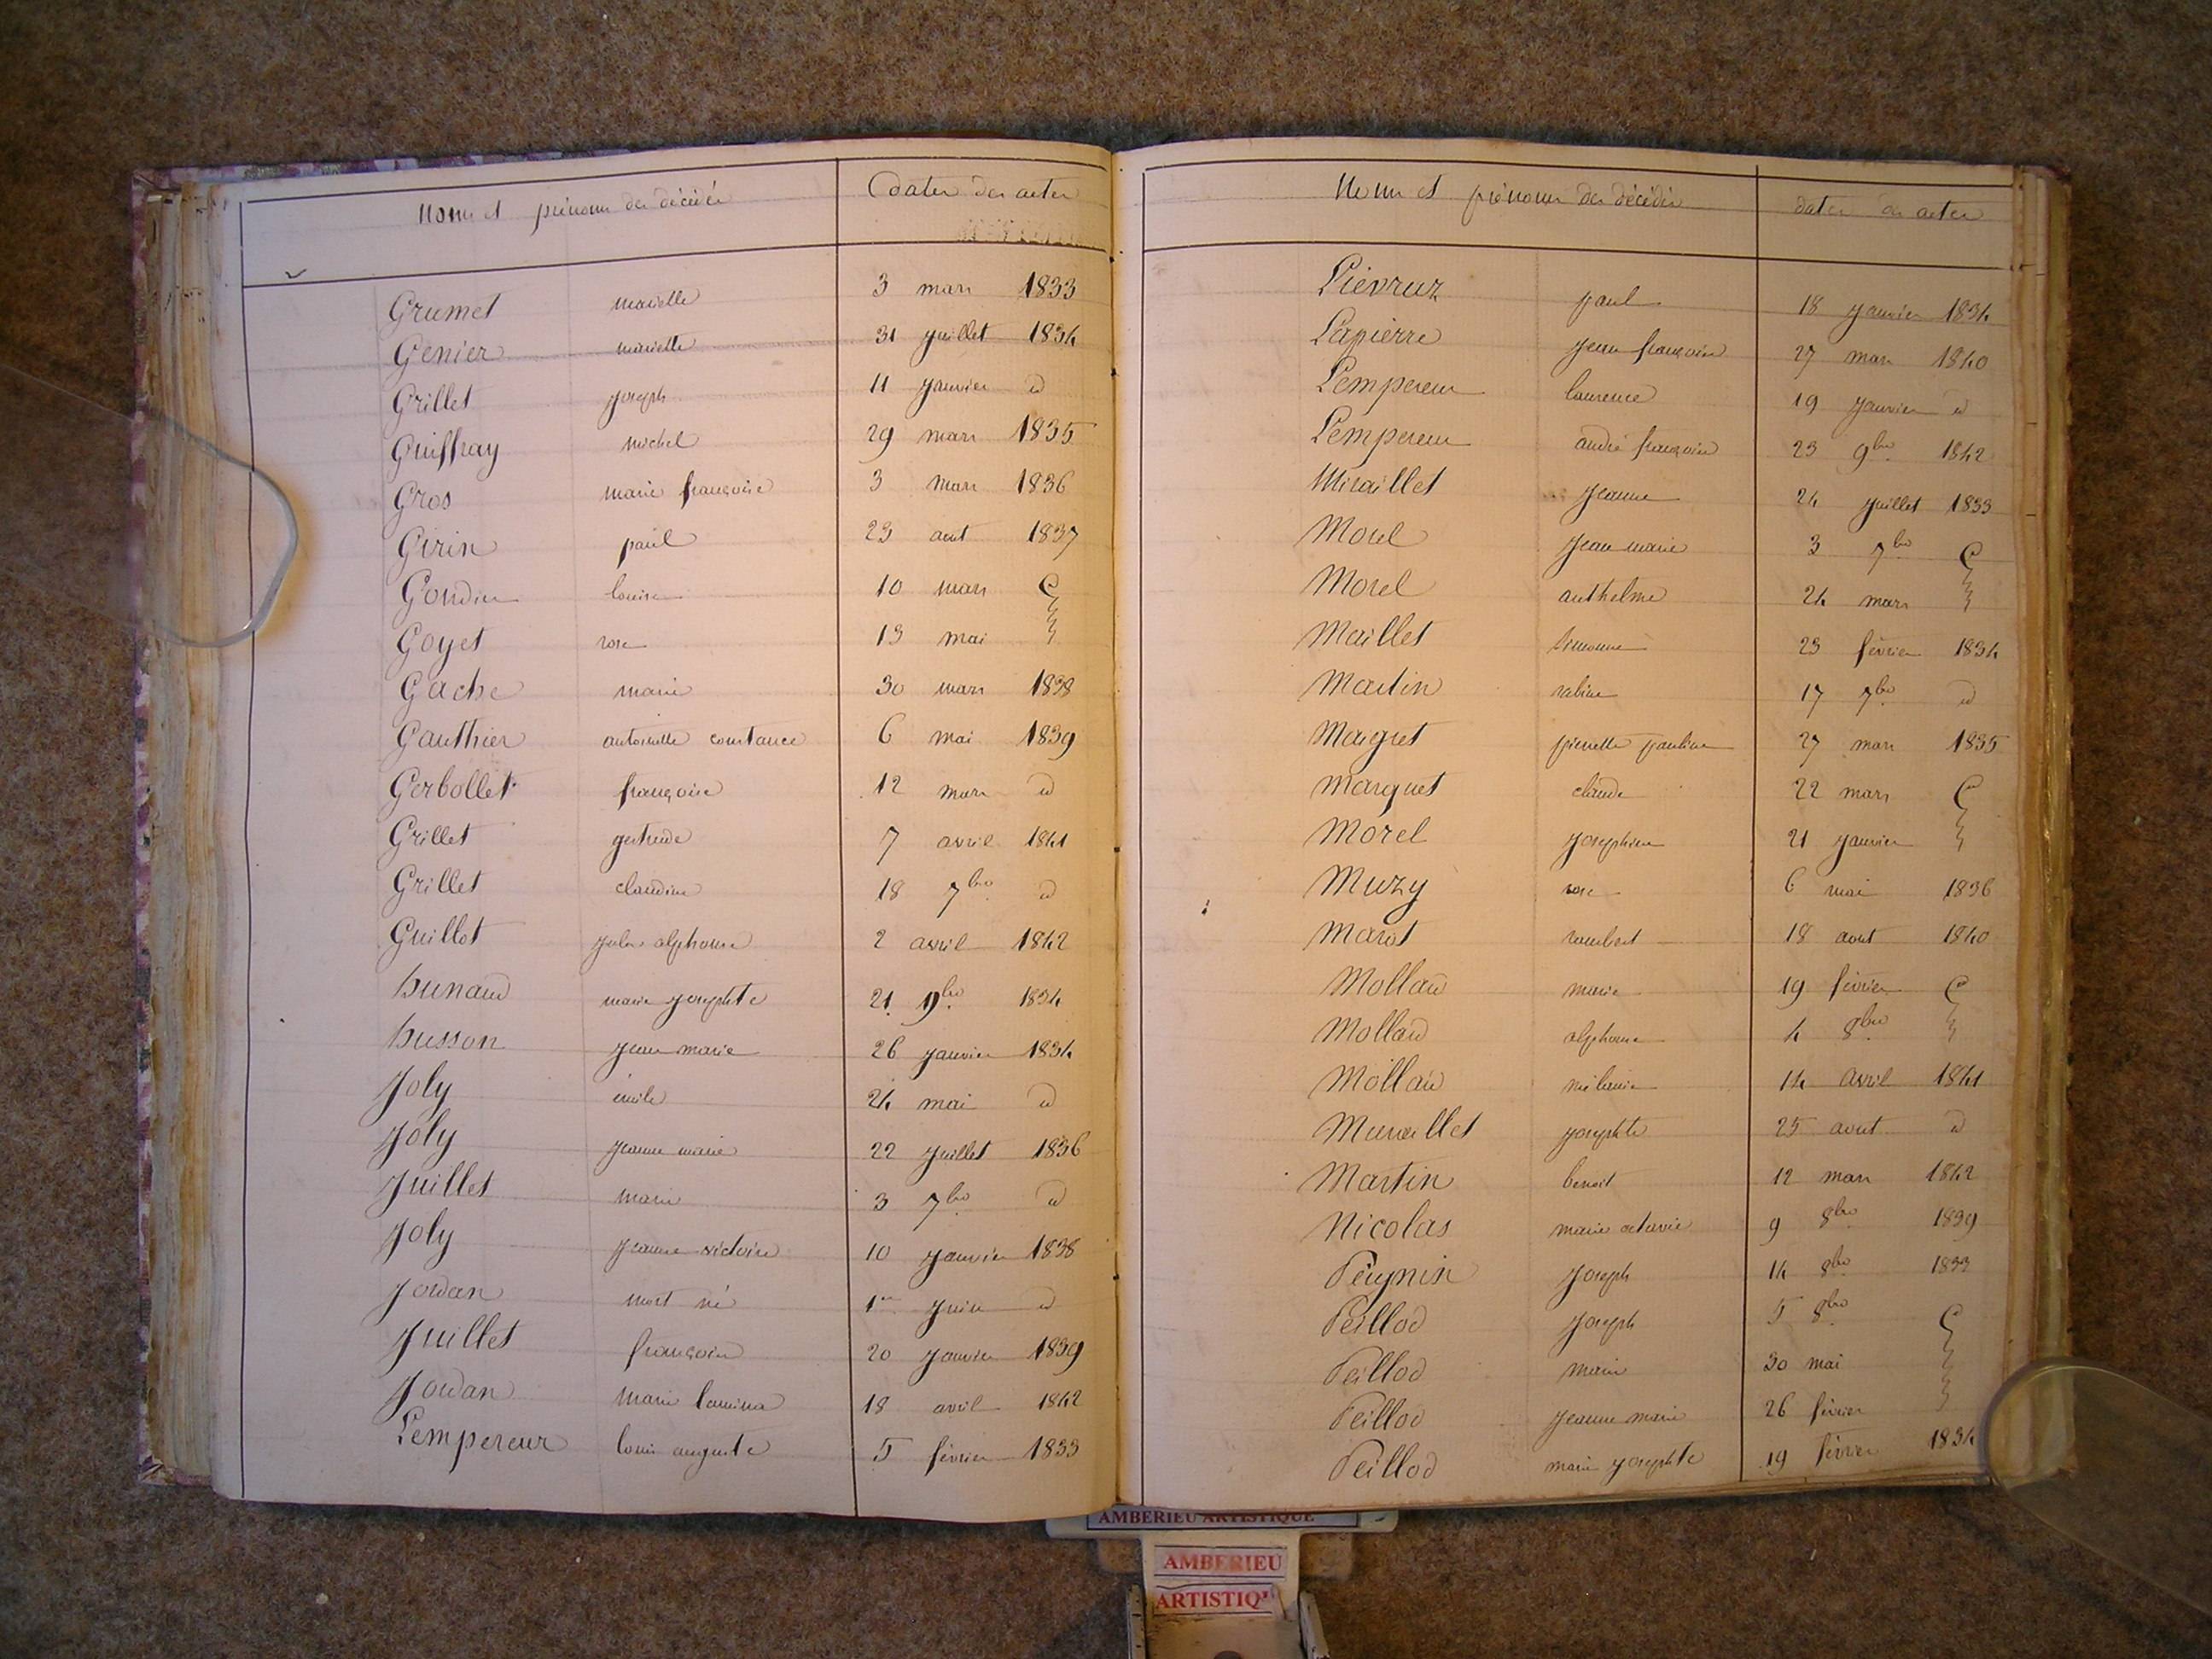 Noms et prénoms des décédés dates des actes
Grumet mariette 3 mars 1833
Genier mariette 31 juillet 1834
Grillet joseph 11 janvier d
Guiffray michel 29 mars 1835
Gros marie françoise 3 mars 1836
Girin paul 23 aout 1837
Gondin louise 10 mars
Goyet rose 13 mai
Gache marie 30 mars 1838
Gauthier antoinette constance 6 mai 1839
Gerbollet françoise 12 mars d
Grillet gertrude 7 avril 1841
Grillet claudine 18 7bre d
Guillot jules alphonse 2 avril 1842
hunaud marie josephte 21 9bre 1834
husson jean marie 26 janvier 1834
Joly émile 24 mai d
Joly jeanne marie 22 juillet 1836
Juillet marie 3 7bre d
Joly jeanne victoire 10 janvier 1838
Jordan mort né 1er juin d
Juillet françoise 20 janvier 1839
Jordan marie 18 avril 1842
Lempereur louis auguste 5 février 1833
Noms et prénoms des décédés dates des actes
Lièvruz paul 18 janvier 1834
Lapierre jean françois 27 mars 1840
Lempereur laurence 19 janvier d
Lempereur andré françois 23 9bre 1842
Miraillet jeanne 24 juillet 1833
Morel jean marie 3 7bre
Morel anthelme 24 mars
Maillet 23 février 1834
Martin sabine 17 7bre d
Magret pierrette pauline 27 mars 1835
Marguet claude 22 mars
Morel josephine 21 janvier
Muzy rose 6 mai 1836
Marot rambert 18 aout 1840
Mollard marie 19 février
Mollard alphonse 4 8bre
Mollard mélanie 14 avril 1841
Muraillet josephte 25 aout d
Martin benoit 12 mars 1842
Nicolas marie octavie 9 8bre 1839
Peygnin joseph 14 8bre 1833
Peillod joseph 5 8bre
Peillod marie 30 mai
Peillod jeanne marie 26 février
Peillod marie josephte 19 février 1834
AMBERIEU ARTISTIQUE
AMBERIEU
ARTISTIQ'